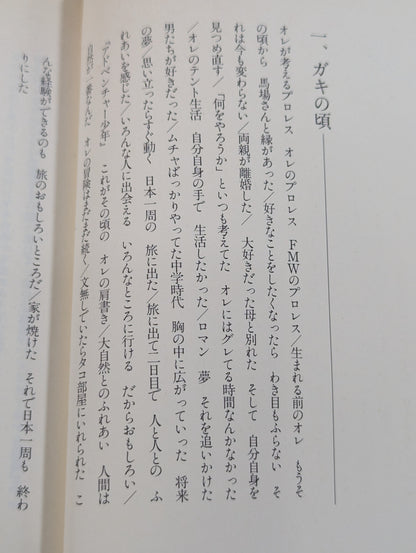 一、ガキの頃
オレが考えるプロレス オレのプロレス FMWのプロレス／生まれる前のオレ もうそ
の頃から 馬場さんと縁があった／好きなことをしたくなったら わき目もふらない そ
れは今も変わらない／両親が離婚した／ 大好きだった母と別れた そして 自分自身を
見つめ直す／「何をやろうか」といつも考えてた オレにはグレてる時間なんかなかった
／オレのテント生活 自分自身の手で 生活したかった／ロマン 夢 それを追いかけた
男たちが好きだった／ムチャばっかりやってた中学時代 胸の中に広がっていった 将来
の夢／思い立ったらすぐ動く 日本一周の 旅に出た／旅に出て二日目で 人と人との ふ
れあいを感じた／いろんな人に出会える いろんなところに行ける だからおもしろい／
『アドベンチャー少年』 これがその頃の オレの肩書き／大自然とのふれあい 人間は
自然が一番なんだ オレの冒険はまだまだ続く／文無しでいたらタコ部屋にいれられた こ
んな経験ができるのも 旅のおもしろいところだ／家が焼けた それで日本一周も 終わ
りにした